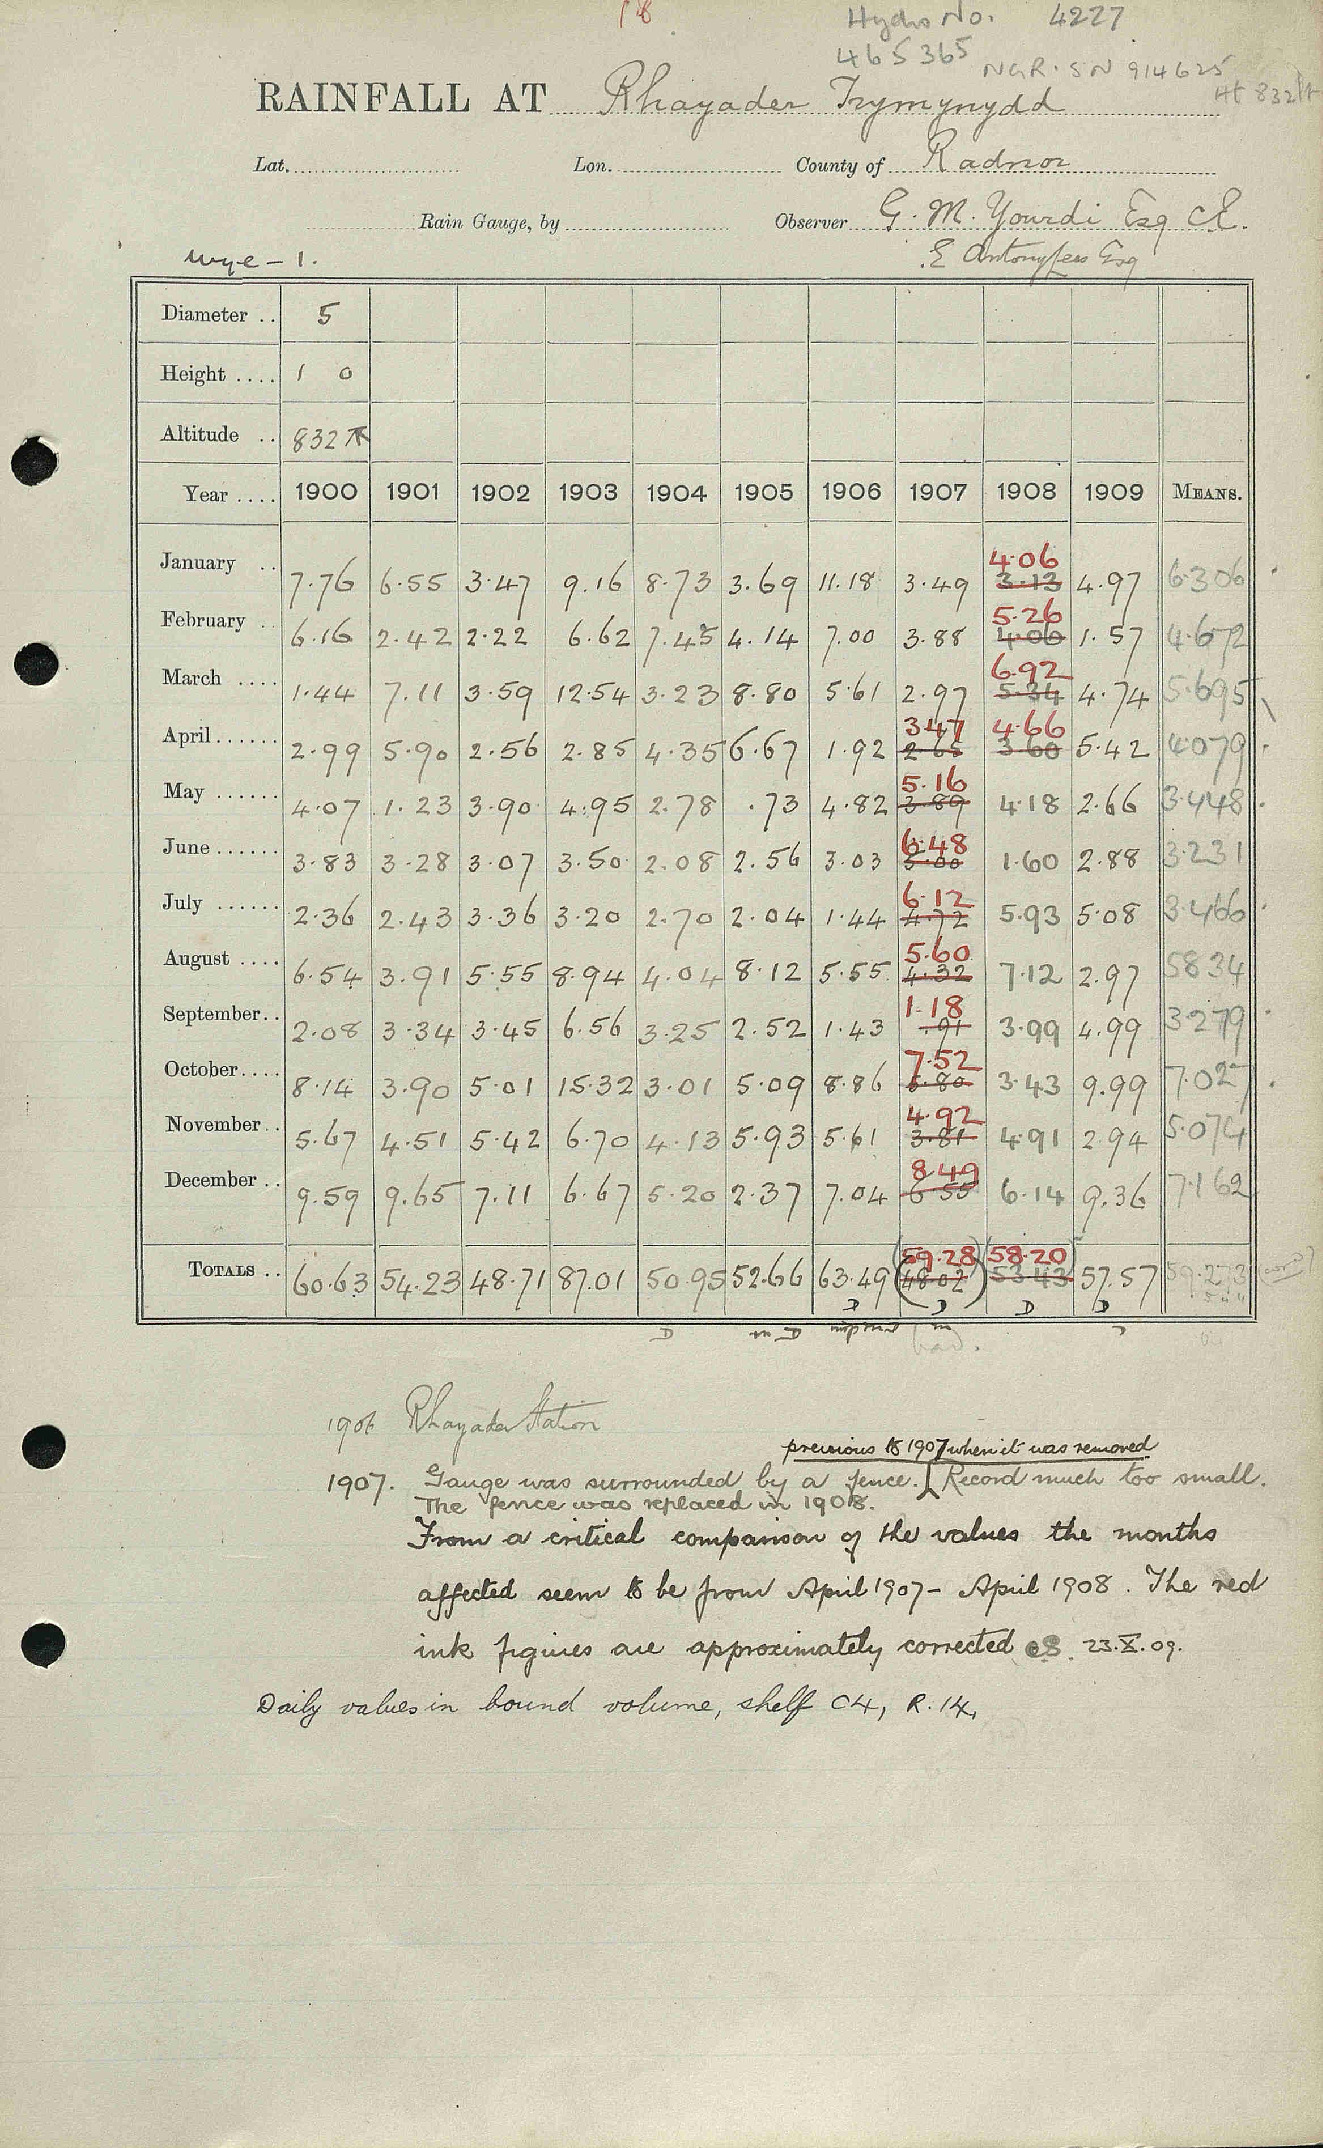 18
Hydro No. 4227
465365 NGR. SN 914625
Ht 832ft
RAINFALL AT Rhayader Trymynydd
Lat. Lon. County of Radnor
Rain Gauge, by Observer G. M. Yourdi Esq C.E.
Wye - 1.
Diameter .. 5
Height .... 1 0
Altitude .. 832
Year .... 1900 1901 1902 1903 1904 1905 1906 1907 1908 1909 MEANS.
January .. 7.76 6.55 3.47 9.16 8.73 3.69 11.18 3.49 4.06 3.13 4.97 6.306
February .. 6.16 2.42 2.22 6.62 7.45 4.14 7.00 3.88 5.26 4.06 1.57 4.672
March .... 1.44 7.11 3.59 12.54 3.23 8.80 5.61 2.97 6.92 5.34 4.74 5.695
April...... 2.99 5.90 2.56 2.85 4.35 6.67 1.92 3.47 2.65 4.66 3.60 5.42 4.079
May ...... 4.07 1.23 3.90 4.95 2.78 .73 4.82 5.16 3.89 4.18 2.66 3.448
June ...... 3.83 3.28 3.07 3.50 2.08 2.56 3.03 6.48 5.00 1.60 2.88 3.231
July ...... 2.36 2.43 3.36 3.20 2.70 2.04 1.44 6.12 4.72 5.93 5.08 3.466
August .... 6.54 3.91 5.55 8.94 4.04 8.12 5.55 5.60 4.32 7.12 2.97 5834
September.. 2.08 3.34 3.45 6.56 3.25 2.52 1.43 1.18 .91 3.99 4.99 3.279
October.... 8.14 3.90 5.01 15.32 3.01 5.09 8.86 7.52 5.80 3.43 9.99 7.027
November.. 5.67 4.51 5.42 6.70 4.13 5.93 5.61 4.92 3.81 4.91 2.94 5.074
December .. 9.59 9.65 7.11 6.67 5.20 2.37 7.04 8.49 6.55 6.14 9.36 7.162
TOTALS .. 60.63 54.23 48.71 87.01 50.95 52.66 63.49 (59.28 48.02) 58.20 53.43 57.57 59.273
D D D D
D D
bad.
1906 Rhayader Station
previous to 1907 when it was removed
1907. Gauge was surrounded by a fence. Record much too small.
The fence was replaced in 1908.
From a critical comparison of the values the months
affected seem to be from April 1907 - April 1908. The red
ink figures are approximately corrected 23.X.09.
Daily values in bound volume, shelf C4, R.14,